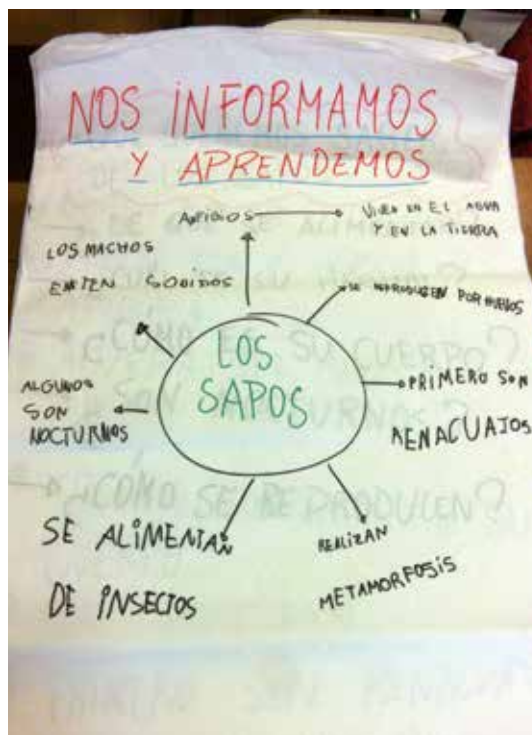 NOS INFORMAMOS
Y APRENDEMOS
ANFIBIOS
VIVEN EN EL AGUA
Y EN LA TIERRA
LOS MACHOS
EMITEN SONIDOS
SE REPRODUCEN POR HUEVOS
LOS
SAPOS
PRIMERO SON
RENACUAJOS
ALGUNOS
SON
NOCTURNOS
SE ALIMENTAN
DE INSECTOS
REALIZAN
METAMORFOSIS
CÓMO ES SU CUERPO?
SON NOCTURNOS?
CÓMO SE REPRODUCEN?